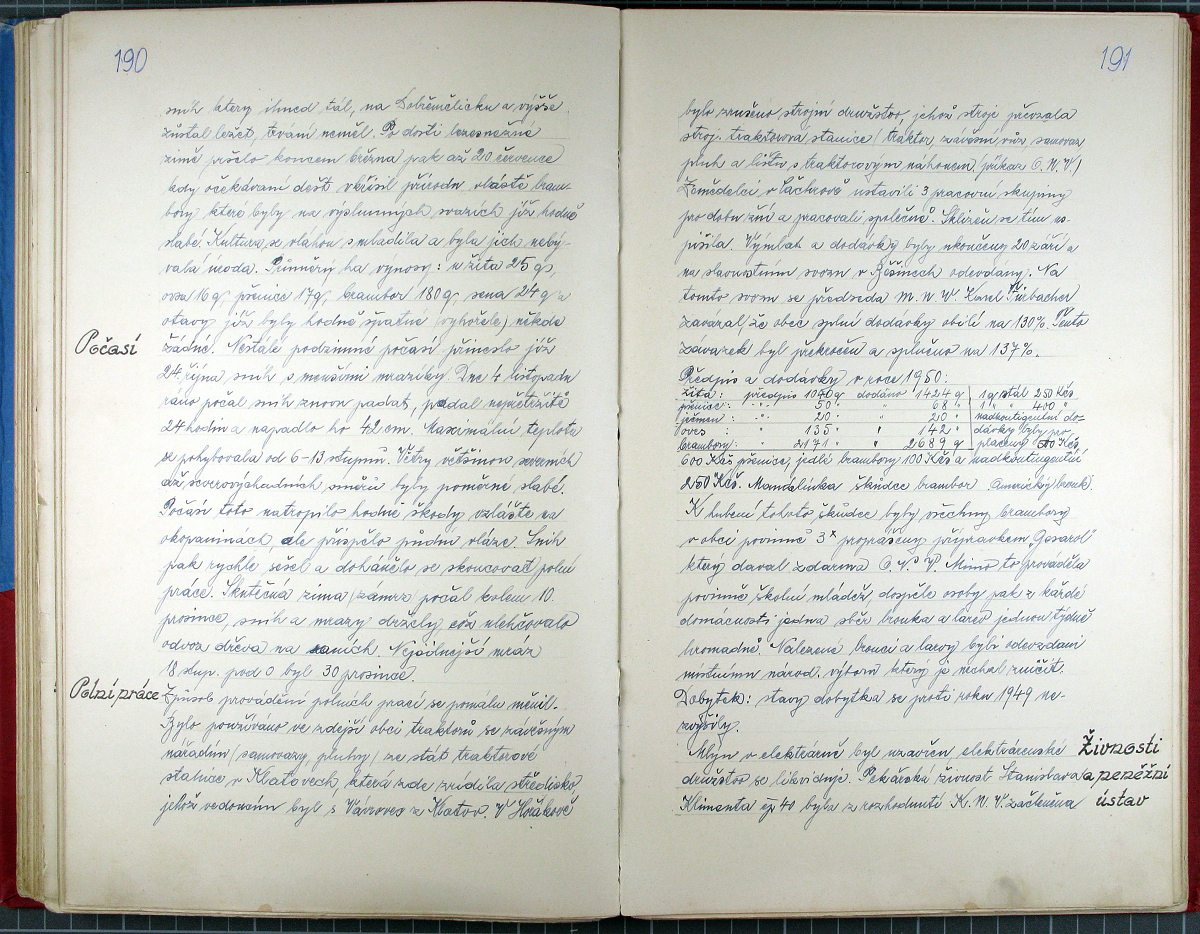 190
sníh který ihned tál, na Dobřemělicku a výšše
zůstal ležet, trvaní neměl. Po dosti bezesnežné
zimě pršelo koncem března pak až 20 července
kdy očekávaní dešť vkřísil přírodu, vláště bram-
bory které byly na výslunných svazích již hodně
slabé. Kultura se vláhou smladila a byla jich neby-
valá úroda. Průměrný ha výnosy: u žita 25 q,
ovsa 16 q, pšenice 17 q, brambor 180 q, sena 24 q a
otavy již byly hodně špatné (vyhořele) někde
Počasí
žádné. Nestálé podzimné počasí přineslo již
24. října sníh s menšími mrazíky. Dne 4 listopadu
ráno počal sníh znovu padat, padal nepřetržitě
24 hodin a napadlo ho 42 cm. Maximální teplota
se pohybovala od 6-13 stupňů. Větry většinou severních
až severovýchodních směrů byly poměrně slabé.
Počasí toto natropilo hodně škody vzláště na
okopaninách, ale přispělo půdní vláze. Sníh
pak rychle sešel a dohánělo se skoncovať polní
práce. Skutečná zima (zámrz počal kolem 10.
prosince, sníh a mrazy držely což ulehčovalo
odvoz dřeva na saních. Nejsilnejší mráz
18 stup. pod 0 byl 30 prosince.
Polní práce
Způsob provádění polních prací se pomálu měnil.
Bylo používáno ve zdejší obci traktorů se závěsným
nářadím (samovazy, pluhy) ze stát traktorové
stanice v Klatovech, která zde zřídila středisko,
jehož vedoucím byl s Vávrovec z Klatov. V Hořákově
191
bylo zrušeno strojní družstvo, jehož stroje převzala
stroj. traktorová stanice (traktor, závěsní vůz samovaz
pluh a lištu s traktorovým náhonem (příkaz O. N. V.)
Zemědelci v ustavili 3 pracovní skupiny
pro dobu žní a pracovali společně. Sklizeň se tím us-
píšila. Výmlat a dodávky byly ukončeny 20 září a
na slavnostním svozu v Běšinech odevdány. Na
tomto svozu se předseda M. N. V Karel
zavázal, že obec splní dodávky obilí na 130%. Tento
závazek byl překročen a splněno na 137%.
Předpis a dodávky v roce 1950:
žita: předpis 1040 q dodáno 1424 q 1 q stál 250 Kčs
pšenice: " " 50 " " 68 " 1 " " 400 "
ječmen: " 20 " " 20 " nadkontigentní do-
oves " 135 " " 142 " dávky byly pro
brambory: " 2171 " " 2689 q placeny 500 Kčs
600 Kčs pšenice, jedlé brambory 100 Kčs a nadkontingentní
250 Kčs. Mandelinka škůdce brambor (americký brouk)
K hubení tohoto škůdce byly všechny brambory
v obci povinně 3x proprášeny přípravkem „Gesarol"
který daval zdarma O. N. V. Mimo to prováděla
povinně školní mládež, dospělé osoby pak z každé
domácnosti jedna sběr brouka a larev jednou týdně
hromadně. Nalezené brouci a larvy byli odevzdani
místnímu národ. výboru který je nechal zničit.
Dobytek: stavy dobytka se proti roku 1949 ne-
zvýšily.
Mlýn v elektrárně byl uzavřen elektrárenské
Živnosti
družstvo se likviduje. Pekařská živnost Stanislava
a peněžní
Klimenta čp 40 byla z rozhodnutí K. N. V. začleněna
ústav